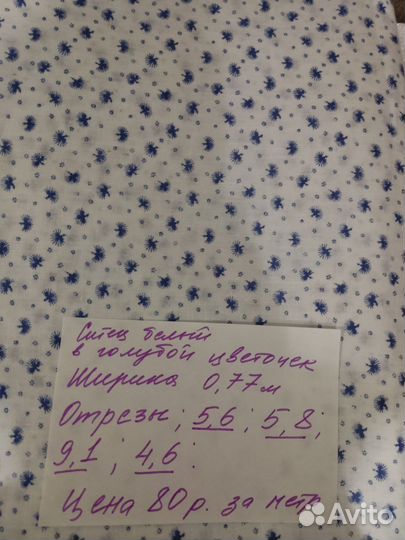 Ситец белый
в голубой цветочек
Ширина 0,77м
Отрезы; 5,6; 5,8;
9,1; 4,6.
Цена 80р. за метр
Avito